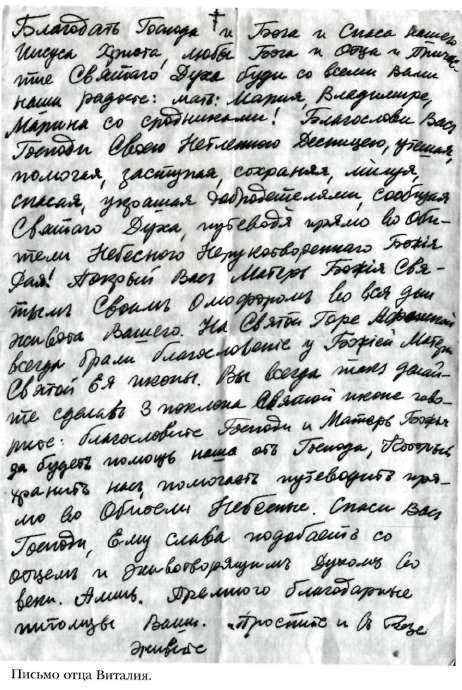 Благодать Господа и Бога и Спаса нашего
Иисуса Христа, любы Бога и Отца и Прича-
тие Святаго Духа буди со всеми Вами
наши радости: мать: Мария, Владимире,
Марина со сродниками! Благослови Васъ
Господи Своею Нетленною Десницею, утешая,
помогая, заступая, сохраняя, милуя,
спасая, украшая добродетелями, сообщая
Святаго Духа, путеводя прямо во Оби-
тели Небесного Нерукотвореннаго Божія
Рая! Покрый Васъ Матерь Божія Свя-
тымъ Своимъ Омофоромъ во вся дни
живота Вашего. На Святой Горе Афонской
всегда брали благословеніе у Божіей Матери
Святой Ея иконы. Вы всегда такъ делай-
те сделавъ 3 поклона Святой иконе гово-
рите: благословите Господи и Матерь Божья
да будетъ помощь наша отъ Господа, Который
хранитъ насъ, помогаетъ путеводитъ пря-
мо во Обители Небесные. Спаси Васъ
Господи, Ему слава подобаетъ со
отцемъ и животворящимъ Духомъ во
веки. Аминь. Премного благодарные
питомцы Ваши. Простите и въ Бозе
живите
Письмо отца Виталия.